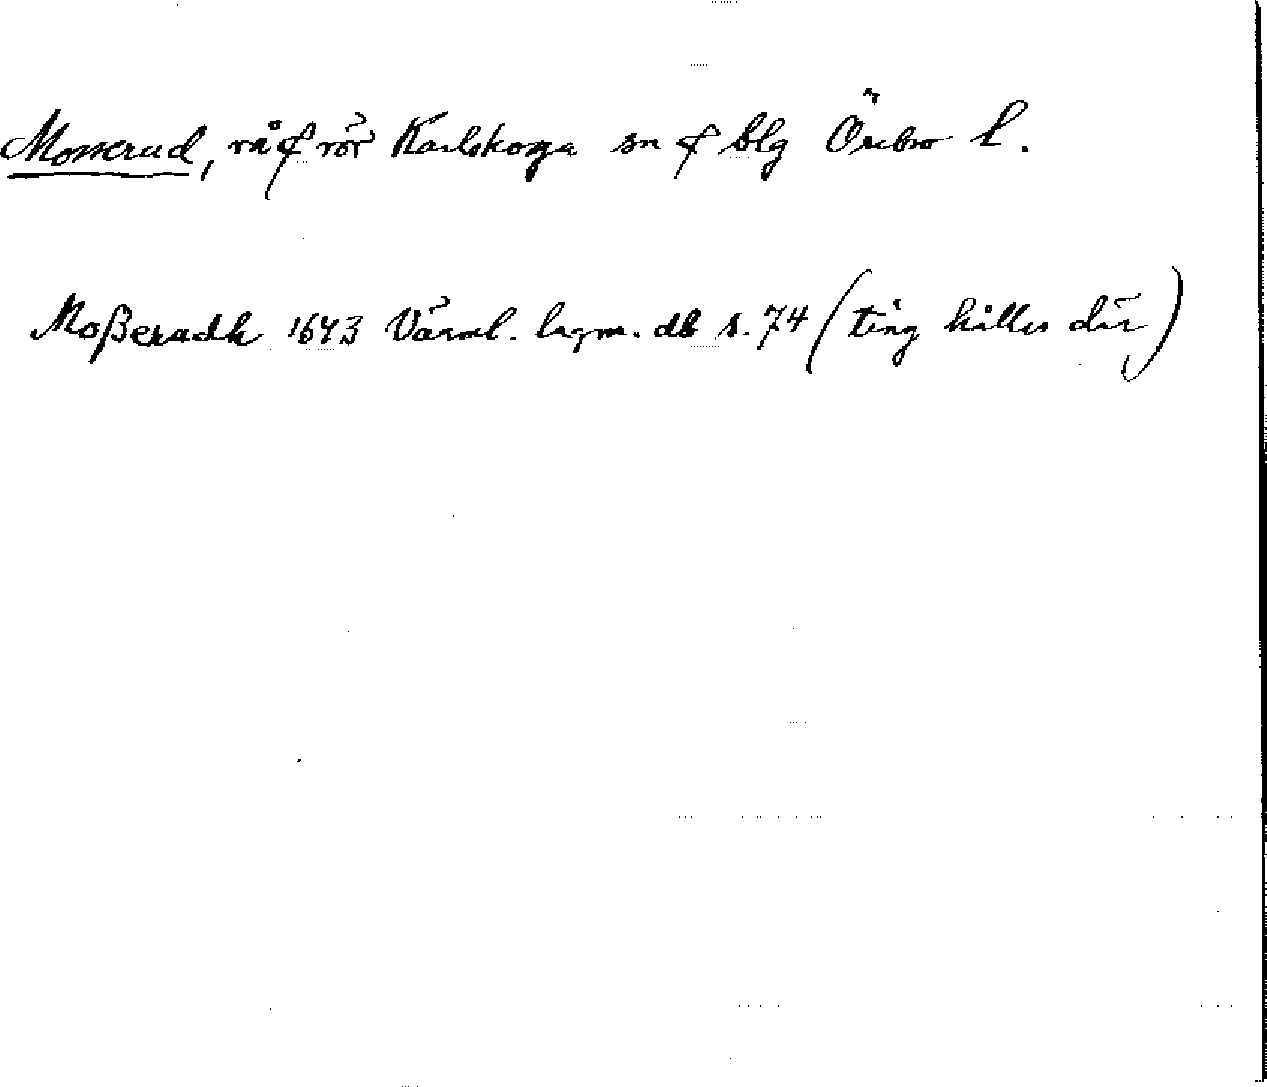 Mosserud, rå & rör Karlskoga sn & blg Örebro l.
Moßerudh 1643 Värml. lagm. db s. 74 (ting hålles där)